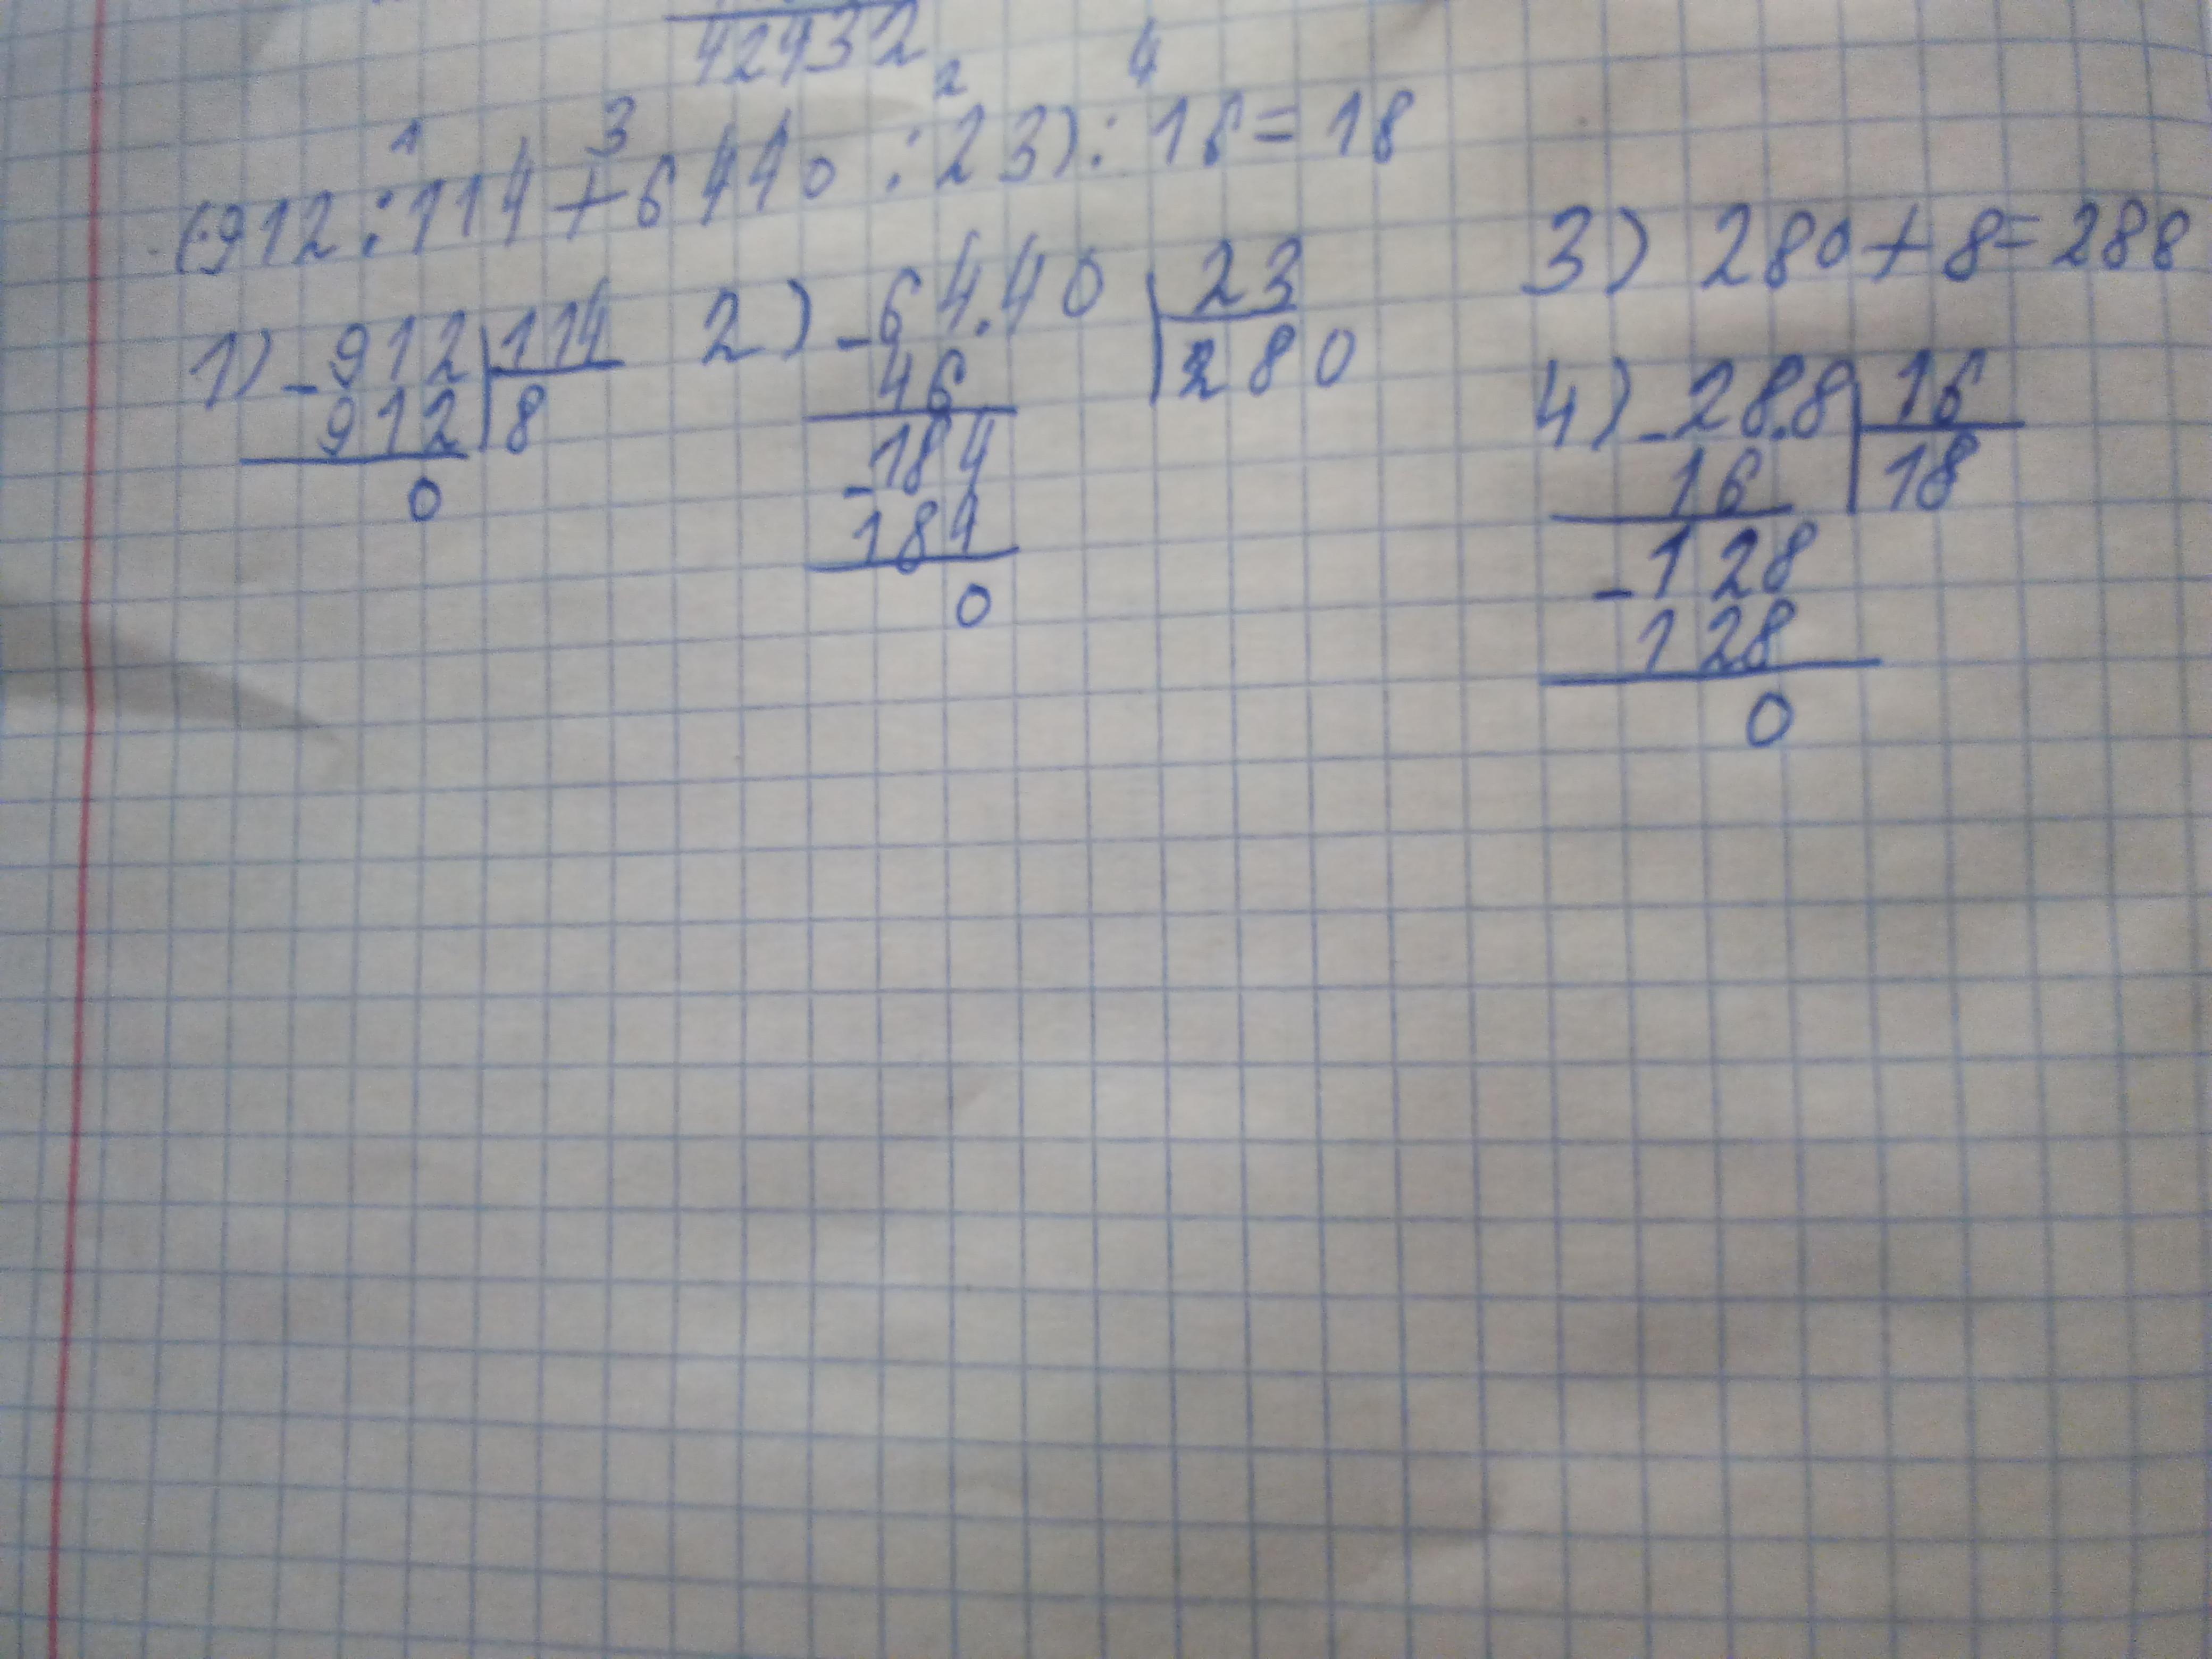 42432
1 3 2 4
(912:114+6440:23):16=18
1) -912 114
912 8
0
2) -64.40 23
46 280
-184
184
0
3) 280+8=288
4) -28.8 16
16 18
-128
128
0